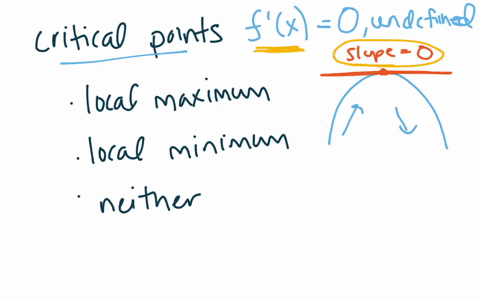 critical points f'(x) = 0, undefined
slope = 0
· local maximum
· local minimum
· neither